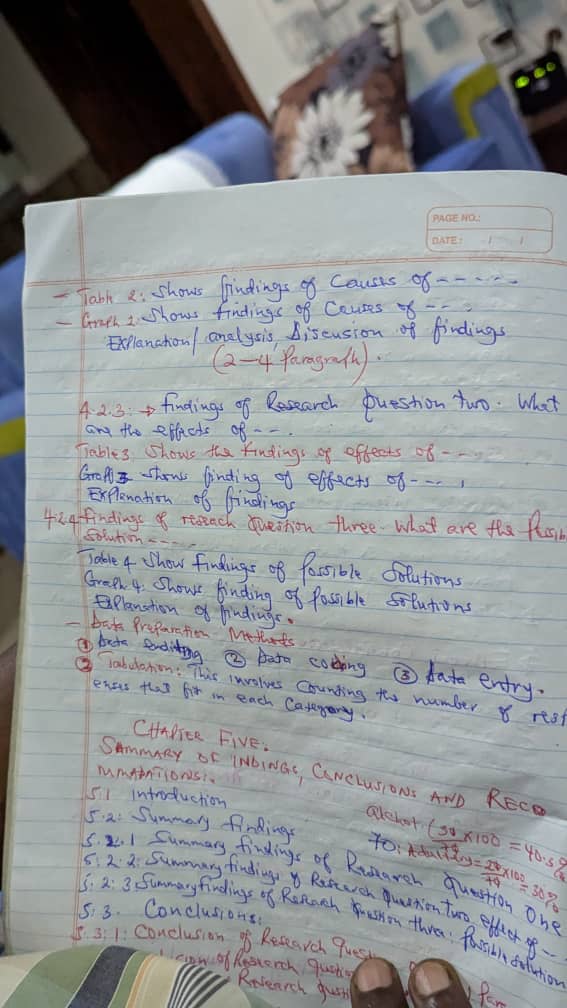 PAGE NO.:
DATE: / /
- Table 2: Shows findings of Causes of -----
- Graph 2: Shows findings of Causes of ----
Explanation/analysis, Discusion of findings
(2-4 Paragraph).
4.2.3: → findings of Research Question two. What
are the effects of ---
Table 3 Shows the findings of effects of ---
Graph 3 shows finding of effects of ---,
Explanation of findings
4.2.4 findings of reseach Question three. What are the
Solution ----
Table 4 Show findings of Possible Solutions
Graph 4: Shows finding of Possible Solutions
Explanation of findings.
- Data Preparation Methods
① Data ② Data coding ③ data entry.
② Tabulation: This involves Counting the number of
that fit in each Category.
CHAPTER FIVE:
SUMMARY OF INDINGS, CONCLUSIONS AND RECO
MMADATIONS:
5.1 Introduction
5.2: Summary findings
5.2.1 Summary findings of Research Question One
5:2:2: Summary findings of Research Question two effect of --
5:2:3: Summary findings of Reseach Question three: Possible solution
5:3. Conclusions:
5.3:1: Conclusion of Research
of Research
Research